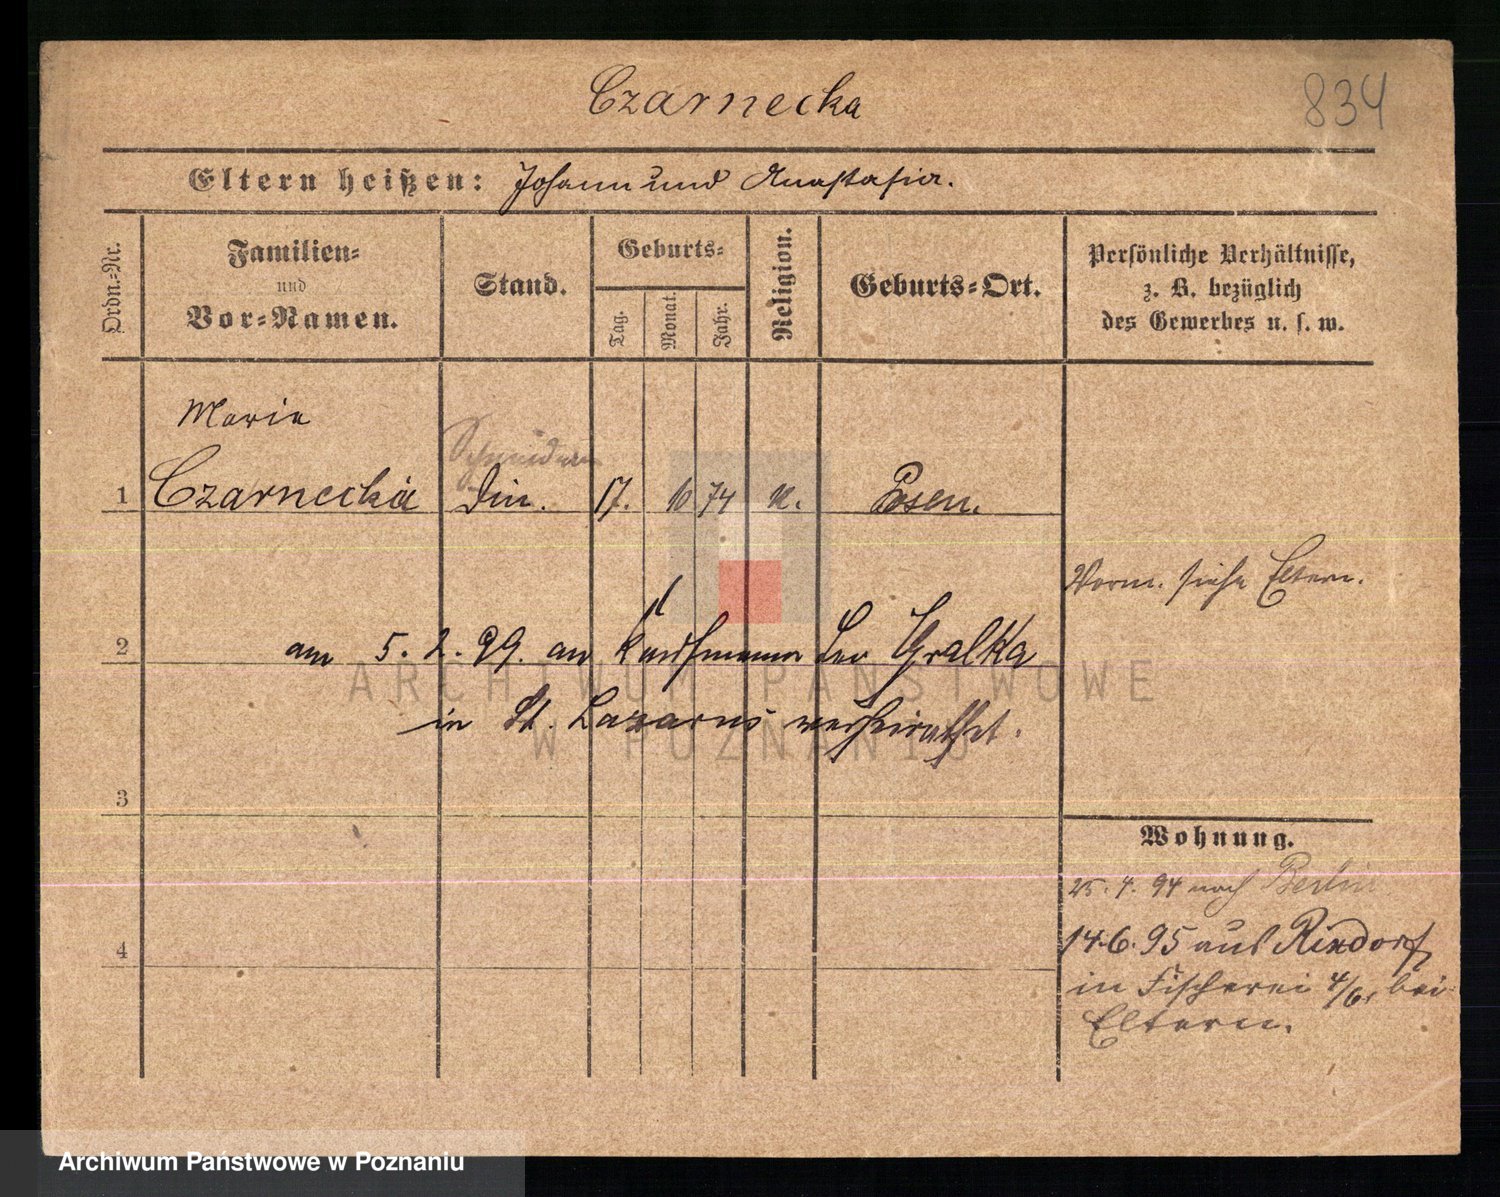 Czarnecka
834
Eltern heißen: Johann und Anastasia.
Ordn.-Nr.
Familien-
und
Vor-Namen.
Stand.
Geburts-
Tag.
Monat.
Jahr.
Religion.
Geburts-Ort.
Persönliche Verhältnisse,
z. B. bezüglich
des Gewerbes u. s. w.
Marie
Schneiderin
1 Czarnecka Din. 17. 10 74 k. Posen.
Vorm. siehe Eltern.
2 am 5. 2. 99. an Kaufmann Leo Gralka
in St. Lazarus verheirathet.
3
Wohnung.
25. 4. 94 nach Berlin
14.6.95 aus Rixdorf
4
in Fischerei 4/6, bei
Eltern.
ARCHIWUM PAŃSTWOWE
W POZNANIU
Archiwum Państwowe w Poznaniu